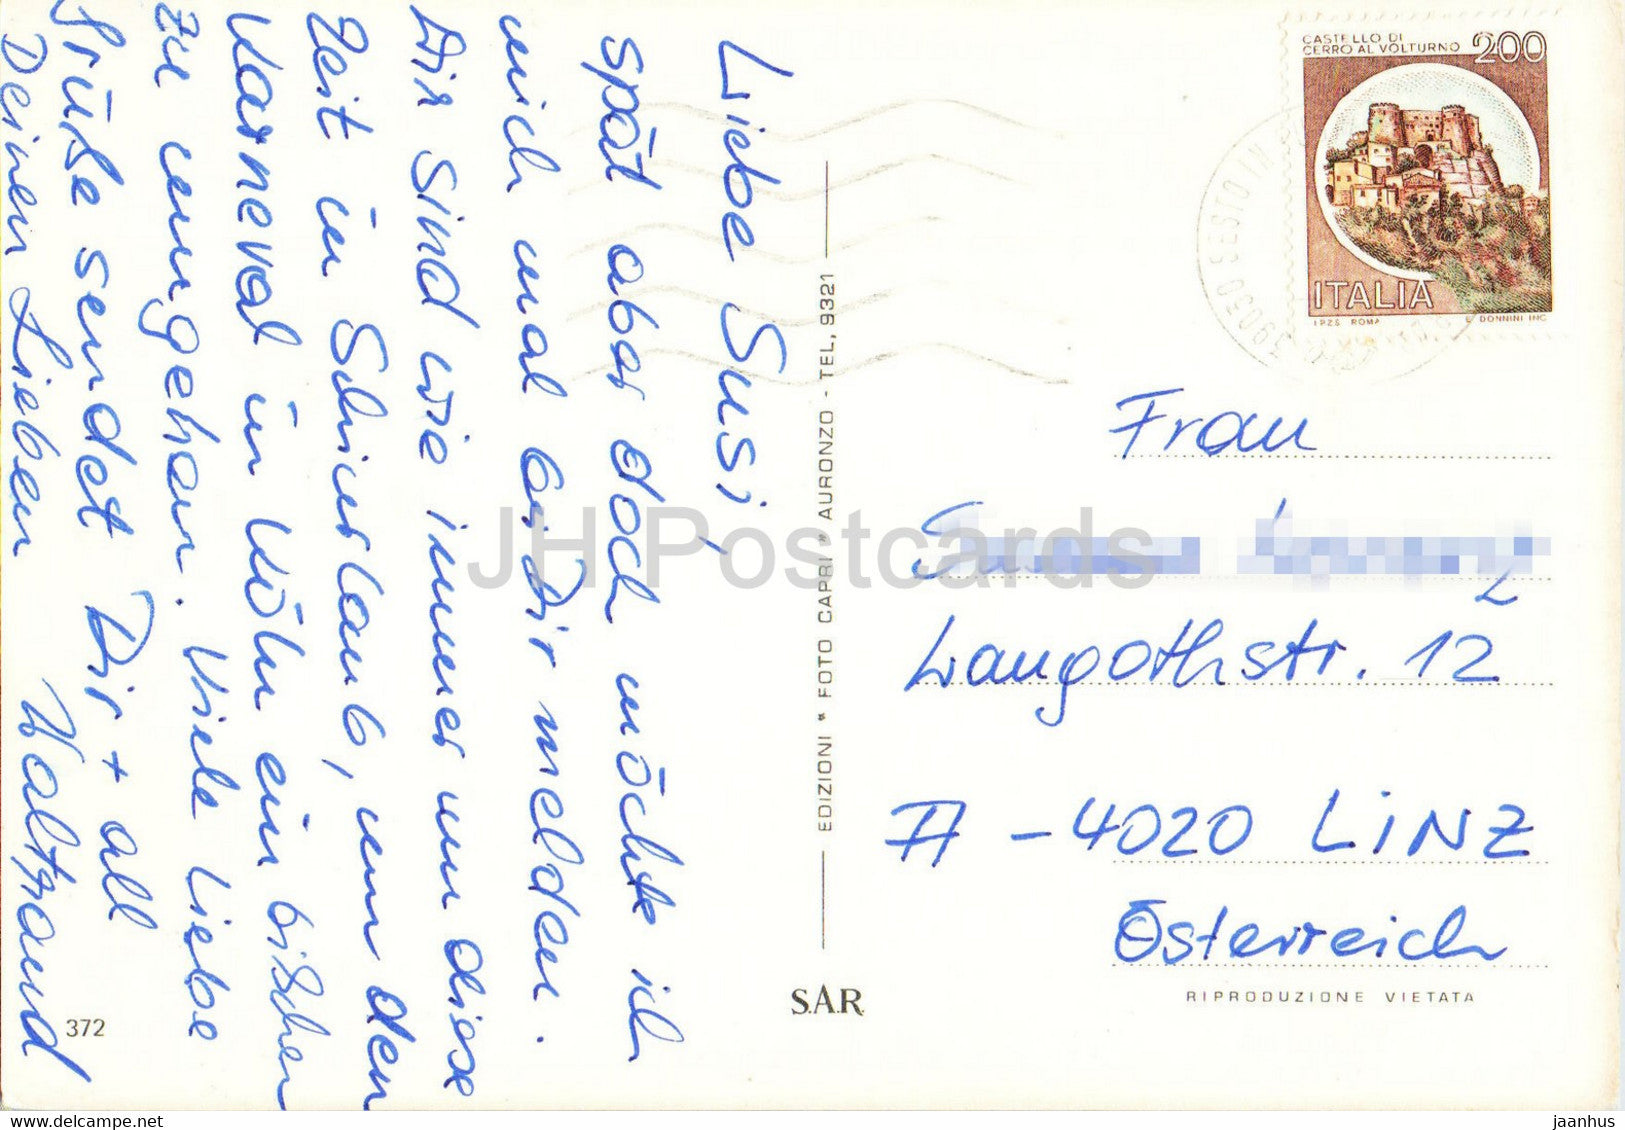 Liebe Susi,
spät aber doch möchte ich
mich mal bei Dir melden.
Wir sind wie immer um diese
Zeit in Schiurlaub, um den
Karneval in Köln ein bißchen
zu umgehen. Viele liebe
Grüße sendet Dir + all
Deinen Lieben Waltraud
372
EDIZIONI * FOTO CAPRI * AURONZO - TEL, 9321
S.A.R.
CASTELLO DI
CERRO AL VOLTURNO 200
ITALIA
I.P.Z.S. ROMA E. DONNINI INC.
39030 SESTO IN
Frau
Langothstr. 12
A - 4020 LINZ
Österreich
RIPRODUZIONE VIETATA
JH Postcards
jaanhus
www.delcampe.net